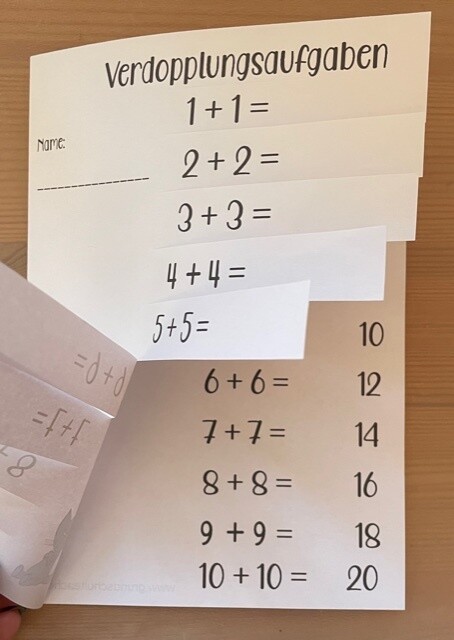 Verdopplungsaufgaben
1 + 1 =
Name:
2 + 2 =
3 + 3 =
4 + 4 =
5 + 5 =
10
6 + 6 = 12
7 + 7 = 14
8 + 8 = 16
9 + 9 = 18
10 + 10 = 20
6+6=
7+7=
8+